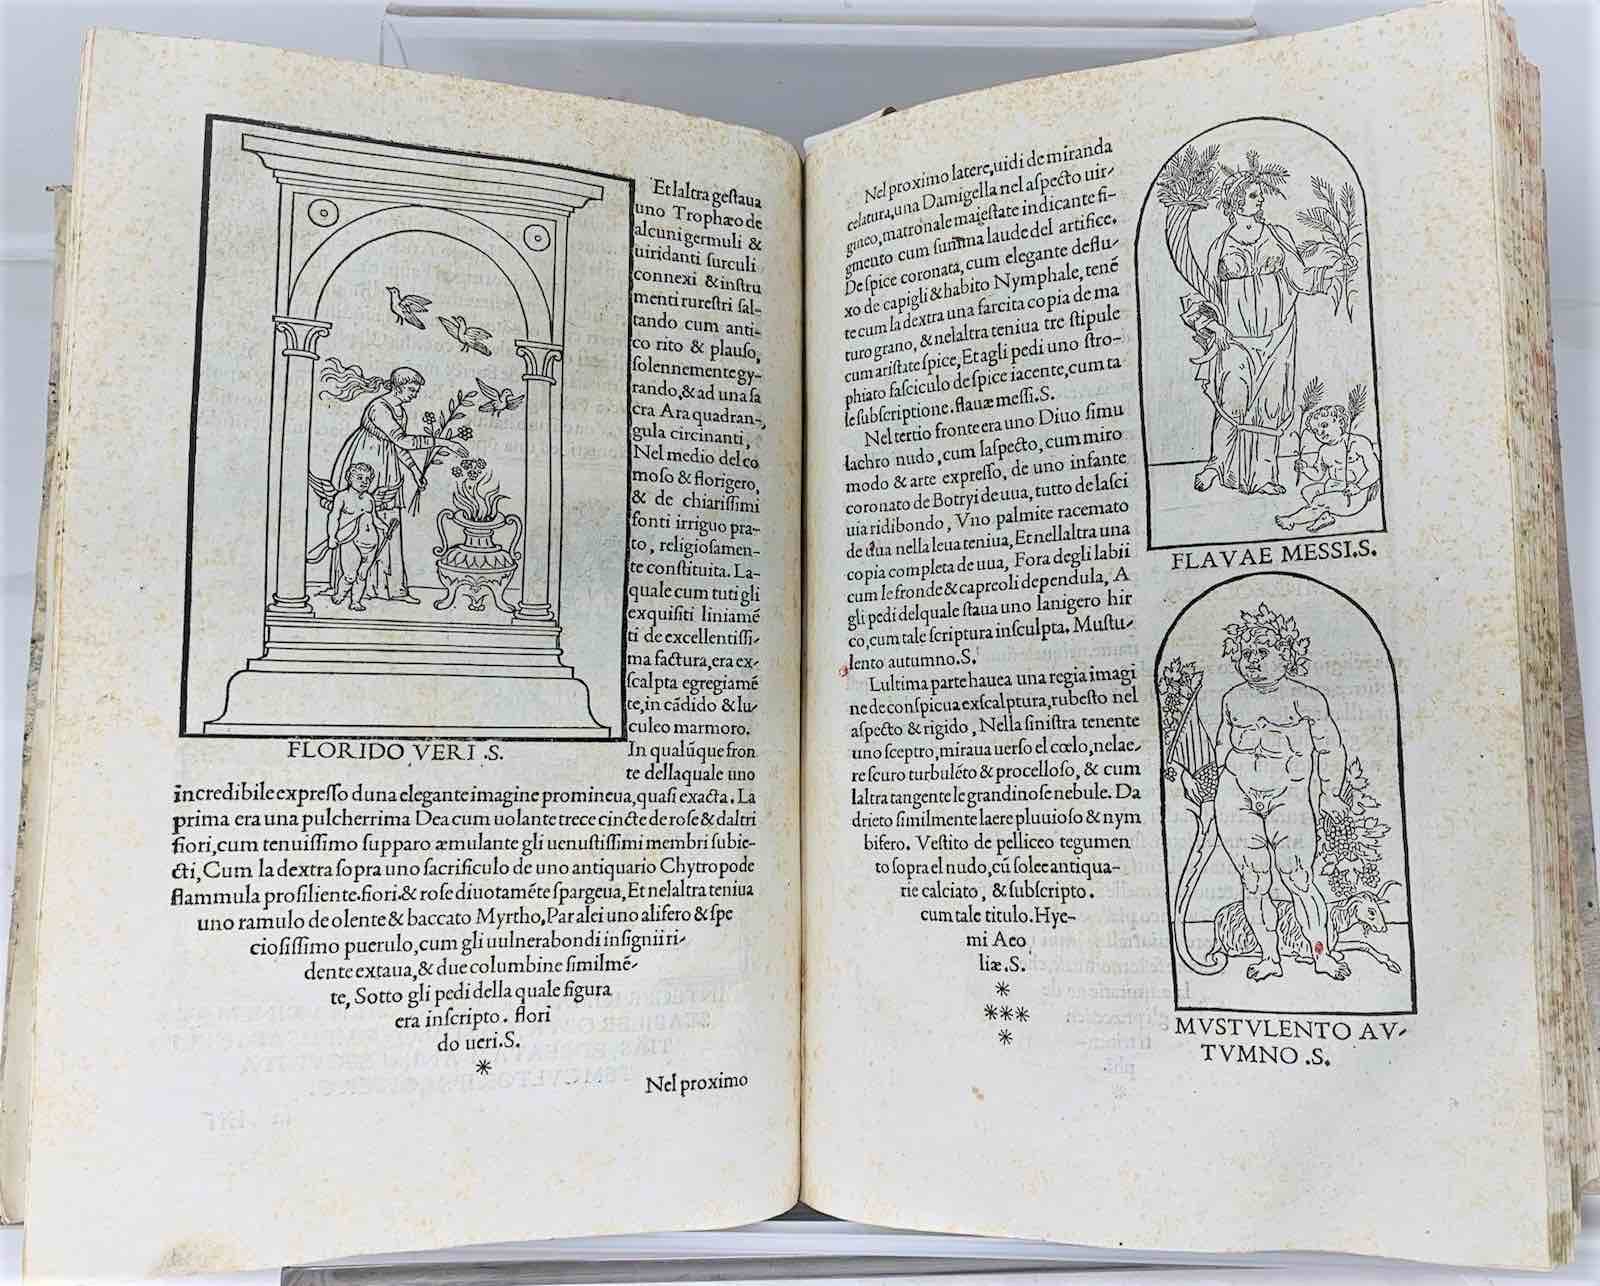 Et laltra gestaua
uno Trophæo de
alcuni germuli &
uiridanti surculi
connexi & instru
menti rurestri sal-
tando cum anti-
co rito & plauso,
solennemente gy-
rando, & ad una sa
cra Ara quadran-
gula circinanti,
Nel medio del co
moso & florigero,
& de chiarissimi
fonti irriguo pra-
to, religiosamen-
te constituita. La-
quale cum tuti gli
exquisiti liniamē
ti de excellentissi-
ma factura, era ex-
scalpta egregiamē
te, in cādido & lu-
culeo marmoro.
In qualūque fron
te dellaquale uno
FLORIDO VERI .S.
incredibile expresso duna elegante imagine promineua, quasi exacta. La
prima era una pulcherrima Dea cum uolante trece cincte de rose & daltri
fiori, cum tenuissimo supparo æmulante gli uenustissimi membri subie-
cti, Cum la dextra sopra uno sacrificulo de uno antiquario Chytropode
flammula prosiliente. fiori & rose diuotamēte spargeua, Et nelaltra teniua
uno ramulo de olente & baccato Myrtho, Par alei uno alifero & spe
ciosissimo puerulo, cum gli uulnerabondi insignii ri-
dente extaua, & due columbine similmē-
te, Sotto gli pedi della quale figura
era inscripto. flori
do ueri.S.
*
Nel proximo
Nel proximo latere, uidi de miranda
celatura, una Damigella nel aspecto uir-
gineo, matronale maiestate indicante fi-
gmento cum summa laude del artifice.
De spice coronata, cum elegante deflu-
xo de capigli & habito Nymphale, tenē
te cum la dextra una farcita copia de ma
turo grano, & nelaltra teniua tre stipule
cum aristate spice, Et agli pedi uno stro-
phiato fasciculo de spice iacente, cum ta
le subscriptione. flauæ messi.S.
Nel tertio fronte era uno Diuo simu
lachro nudo, cum laspecto, cum miro
modo & arte expresso, de uno infante
coronato de Botryi de uua, tutto de lasci
uia ridibondo, Vno palmite racemato
de uua nella leua teniua, Et nellaltra una
copia completa de uua, Fora degli labii
cum le fronde & capreoli dependula, A
gli pedi delquale staua uno lanigero hir
co, cum tale scriptura insculpta. Mustu-
lento autumno.S.
Lultima parte hauea una regia imagi
ne de conspicua exscalptura, rubesto nel
aspecto & rigido, Nella sinistra tenente
uno sceptro, miraua uerso el cœlo, nelae-
re scuro turbulēto & procelloso, & cum
laltra tangente le grandinose nebule. Da
drieto similmente laere pluuioso & nym
bifero. Vestito de pelliceo tegumen
to sopra el nudo, cū solee antiqua-
rie calciato, & subscripto.
cum tale titulo. Hye-
mi Aeo
liæ.S.
*
***
*
FLAVAE MESSI.S.
MVSTVLENTO AV-
TVMNO .S.